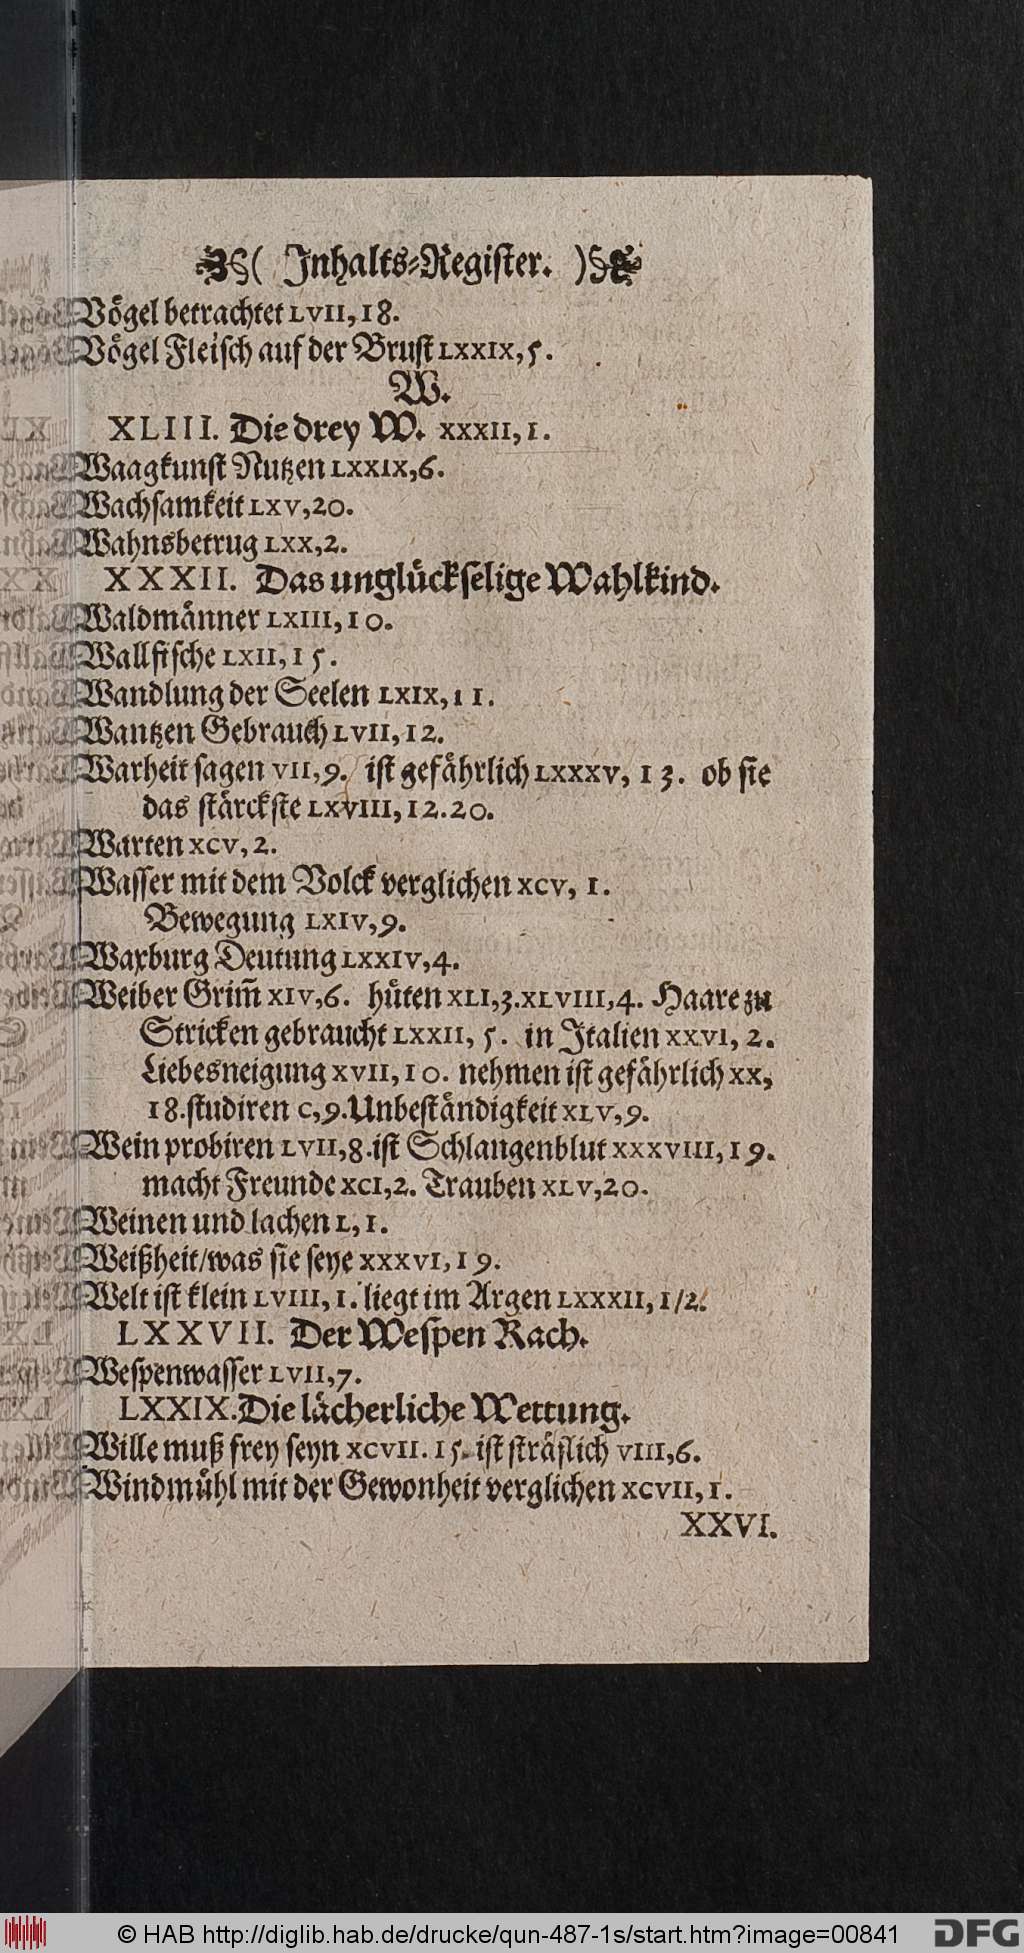 ( Inhalts-Register. )
Vögel betrachtet LVII, 18.
Vögel Fleisch auf der Brust LXXIX, 5.
W.
XLIII. Die drey W. XXXII, 1.
Waagkunst Nutzen LXXIX, 6.
Wachsamkeit LXV, 20.
Wahnsbetrug LXX, 2.
XXXII. Das unglückselige Wahlkind.
Waldmänner LXIII, 10.
Wallfische LXII, 15.
Wandlung der Seelen LXIX, 11.
Wantzen Gebrauch LVII, 12.
Warheit sagen VII, 9. ist gefährlich LXXXV, 13. ob sie
das stärckste LXVIII, 12. 20.
Warten XCV, 2.
Wasser mit dem Volck verglichen XCV, 1.
Bewegung LXIV, 9.
Waxburg Deutung LXXIV, 4.
Weiber Grim̃ XIV, 6. hüten XLI, 3. XLVIII, 4. Haare zu
Stricken gebraucht LXXII, 5. in Italien XXVI, 2.
Liebesneigung XVII, 10. nehmen ist gefährlich XX,
18. studiren C, 9. Unbeständigkeit XLV, 9.
Wein probiren LVII, 8. ist Schlangenblut XXXVIII, 19.
macht Freunde XCI, 2. Trauben XLV, 20.
Weinen und lachen L, 1.
Weißheit/ was sie seye XXXVI, 19.
Welt ist klein LVIII, 1. liegt im Argen LXXXII, 1/2.
LXXVII. Der Wespen Rach.
Wespenwasser LVII, 7.
LXXIX. Die lächerliche Wettung.
Wille muß frey seyn XCVII. 15. ist sträflich VIII, 6.
Windmühl mit der Gewonheit verglichen XCVII, 1.
XXVI.
© HAB http://diglib.hab.de/drucke/qun-487-1s/start.htm?image=00841
DFG